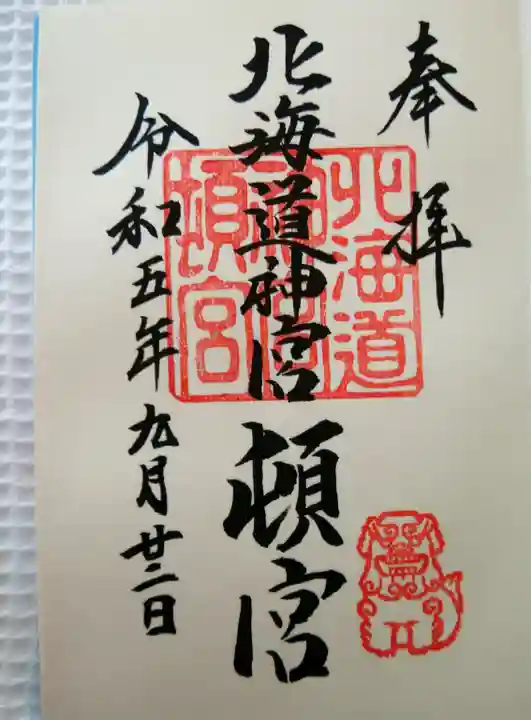 奉拝
北海道神宮頓宮
北海道
神宮
頓宮
令和五年九月廿二日